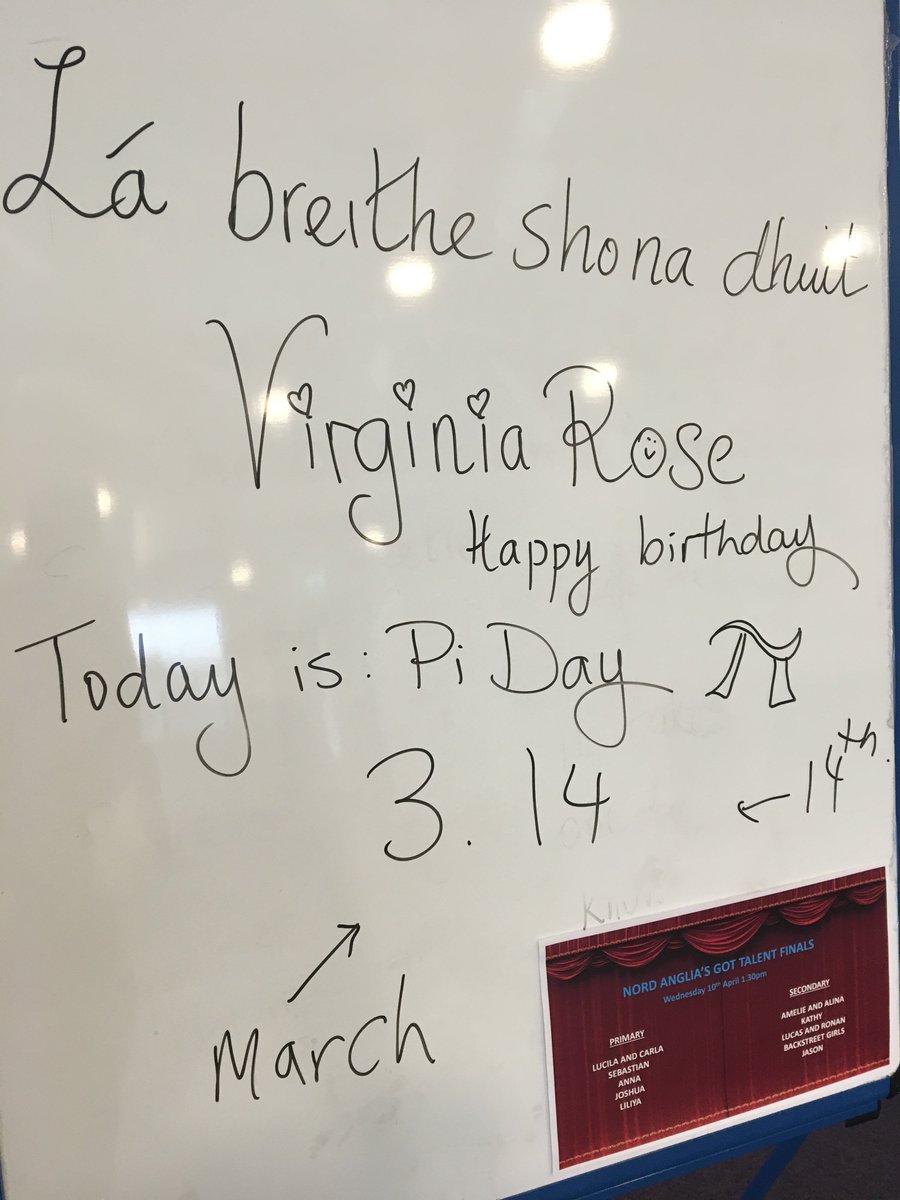 Lá breithe shona dhuit
Virginia Rose
Happy birthday
Today is: Pi Day π
3.14 ← 14th.
↗
March
NORD ANGLIA'S GOT TALENT FINALS
Wednesday 10th April 1.30pm
PRIMARY
LUCILA AND CARLA
SEBASTIAN
ANNA
JOSHUA
LILIYA
SECONDARY
AMELIE AND ALINA
KATHY
LUCAS AND RONAN
BACKSTREET GIRLS
JASON